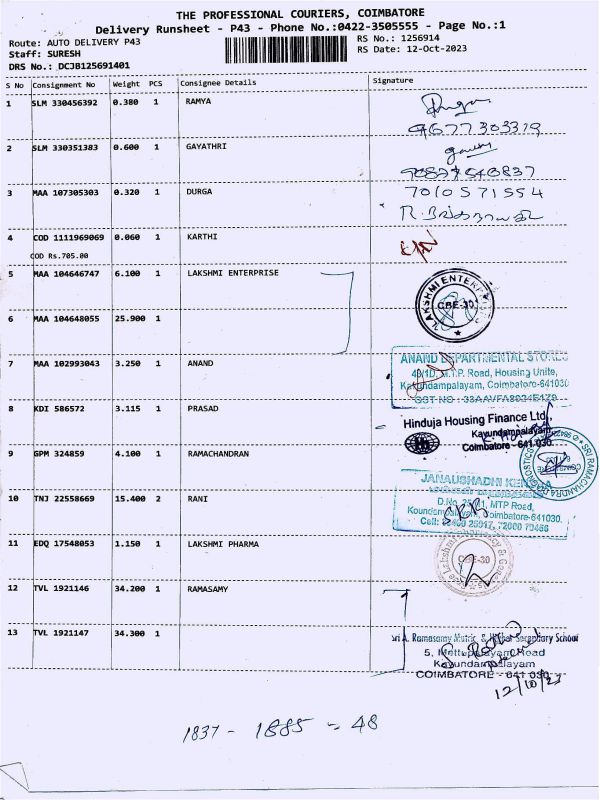 THE PROFESSIONAL COURIERS, COIMBATORE
Delivery Runsheet - P43 - Phone No.:0422-3505555 - Page No.:1
Route: AUTO DELIVERY P43
RS No.: 1256914
Staff: SURESH
RS Date: 12-Oct-2023
DRS No.: DCJB125691401
S No Consignment No Weight PCS Consignee Details Signature
1 SLM 330456392 0.380 1 RAMYA
9677303319
2 SLM 330351383 0.600 1 GAYATHRI
3 MAA 107305303 0.320 1 DURGA 7010571554
4 COD 1111969069 0.060 1 KARTHI
COD Rs.705.00
5 MAA 104646747 6.100 1 LAKSHMI ENTERPRISE
LAKSHMI ENTERPRISE
CBE-30
6 MAA 104648055 25.900 1
7 MAA 102993043 3.250 1 ANAND
ANAND DEPARTMENTAL STORES
M.T.P. Road, Housing Unite,
Kavundampalayam, Coimbatore-641030
GST NO :
8 KDI 586572 3.115 1 PRASAD
Hinduja Housing Finance Ltd.,
Kavundampalayam,
Coimbatore - 641 030.
9 GPM 324859 4.100 1 RAMACHANDRAN
SRI RAMACHANDRA
10 TNJ 22558669 15.400 2 RANI
JANAUSHADHI KENDRA
MTP Road,
Coimbatore-641030.
11 EDQ 17548053 1.150 1 LAKSHMI PHARMA
CBE-30
12 TVL 1921146 34.200 1 RAMASAMY
13 TVL 1921147 34.300 1
Sri A. Ramasamy Matric. & Higher Secondary School
5, Mettupalayam Road
Kavundampalayam
COIMBATORE - 641 030.
12/10/23
1837 - 1885 = 48